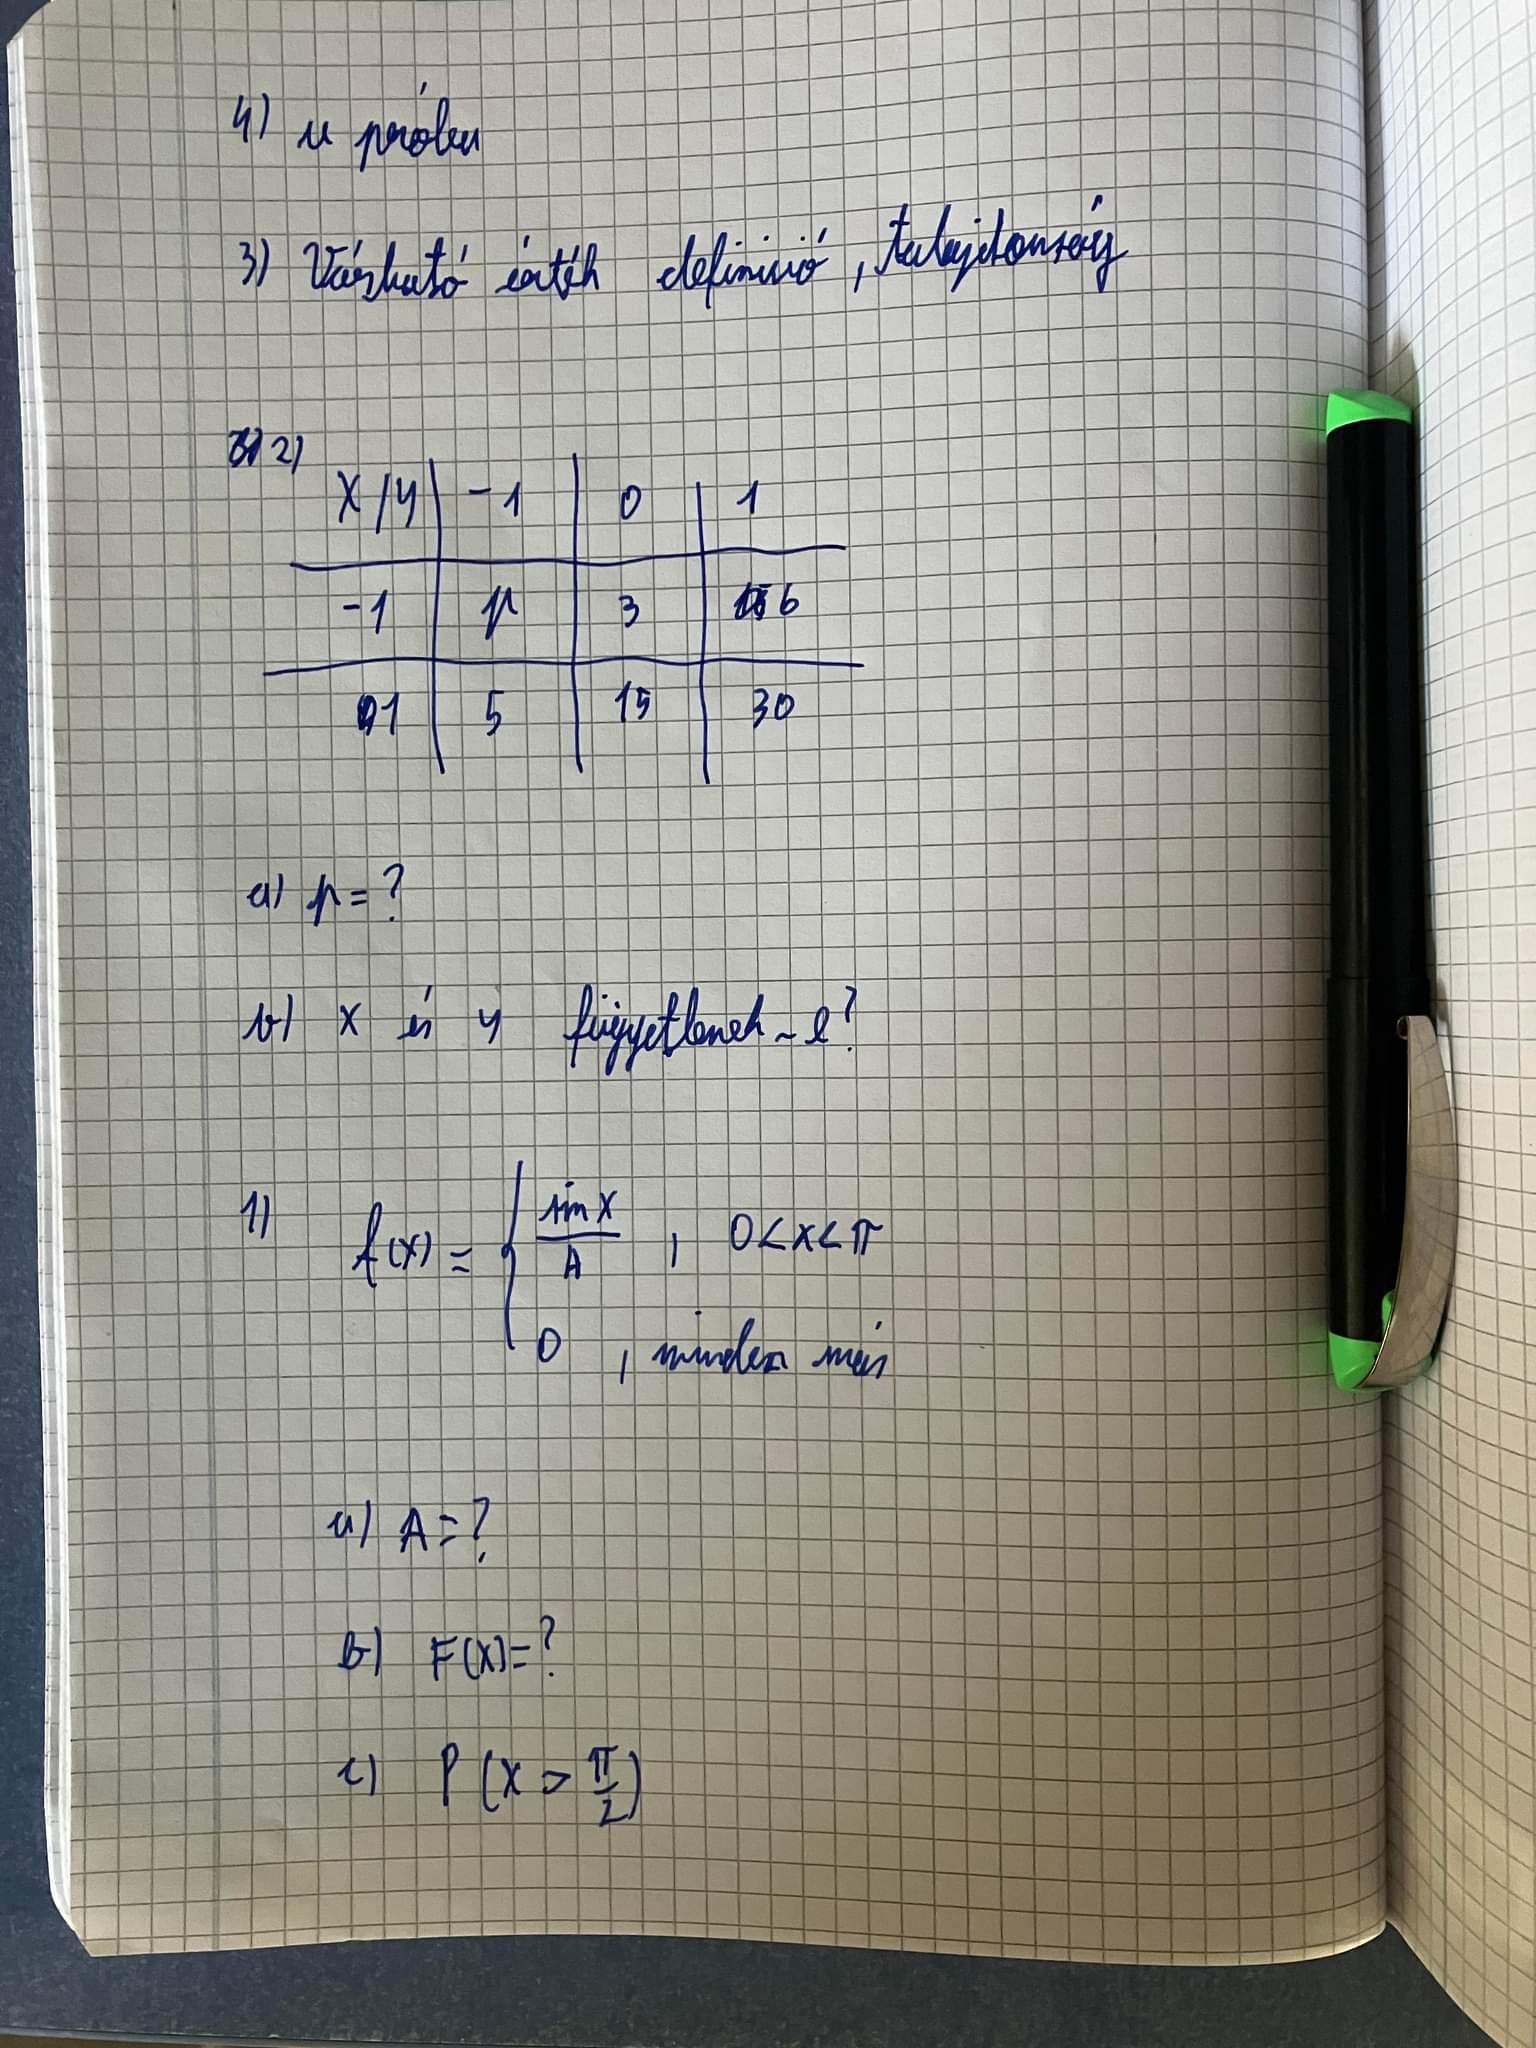 4) u próba
3) Várható érték definició, tulajdonság
2)
X/Y -1 0 1
-1 p 3 6
1 5 15 30
a) p=?
b) x és y függetlenek-e?
1) f(x) = { sin x / A , 0<x<π
0 , minden más
a) A=?
b) F(x)=?
c) P(x > π/2)